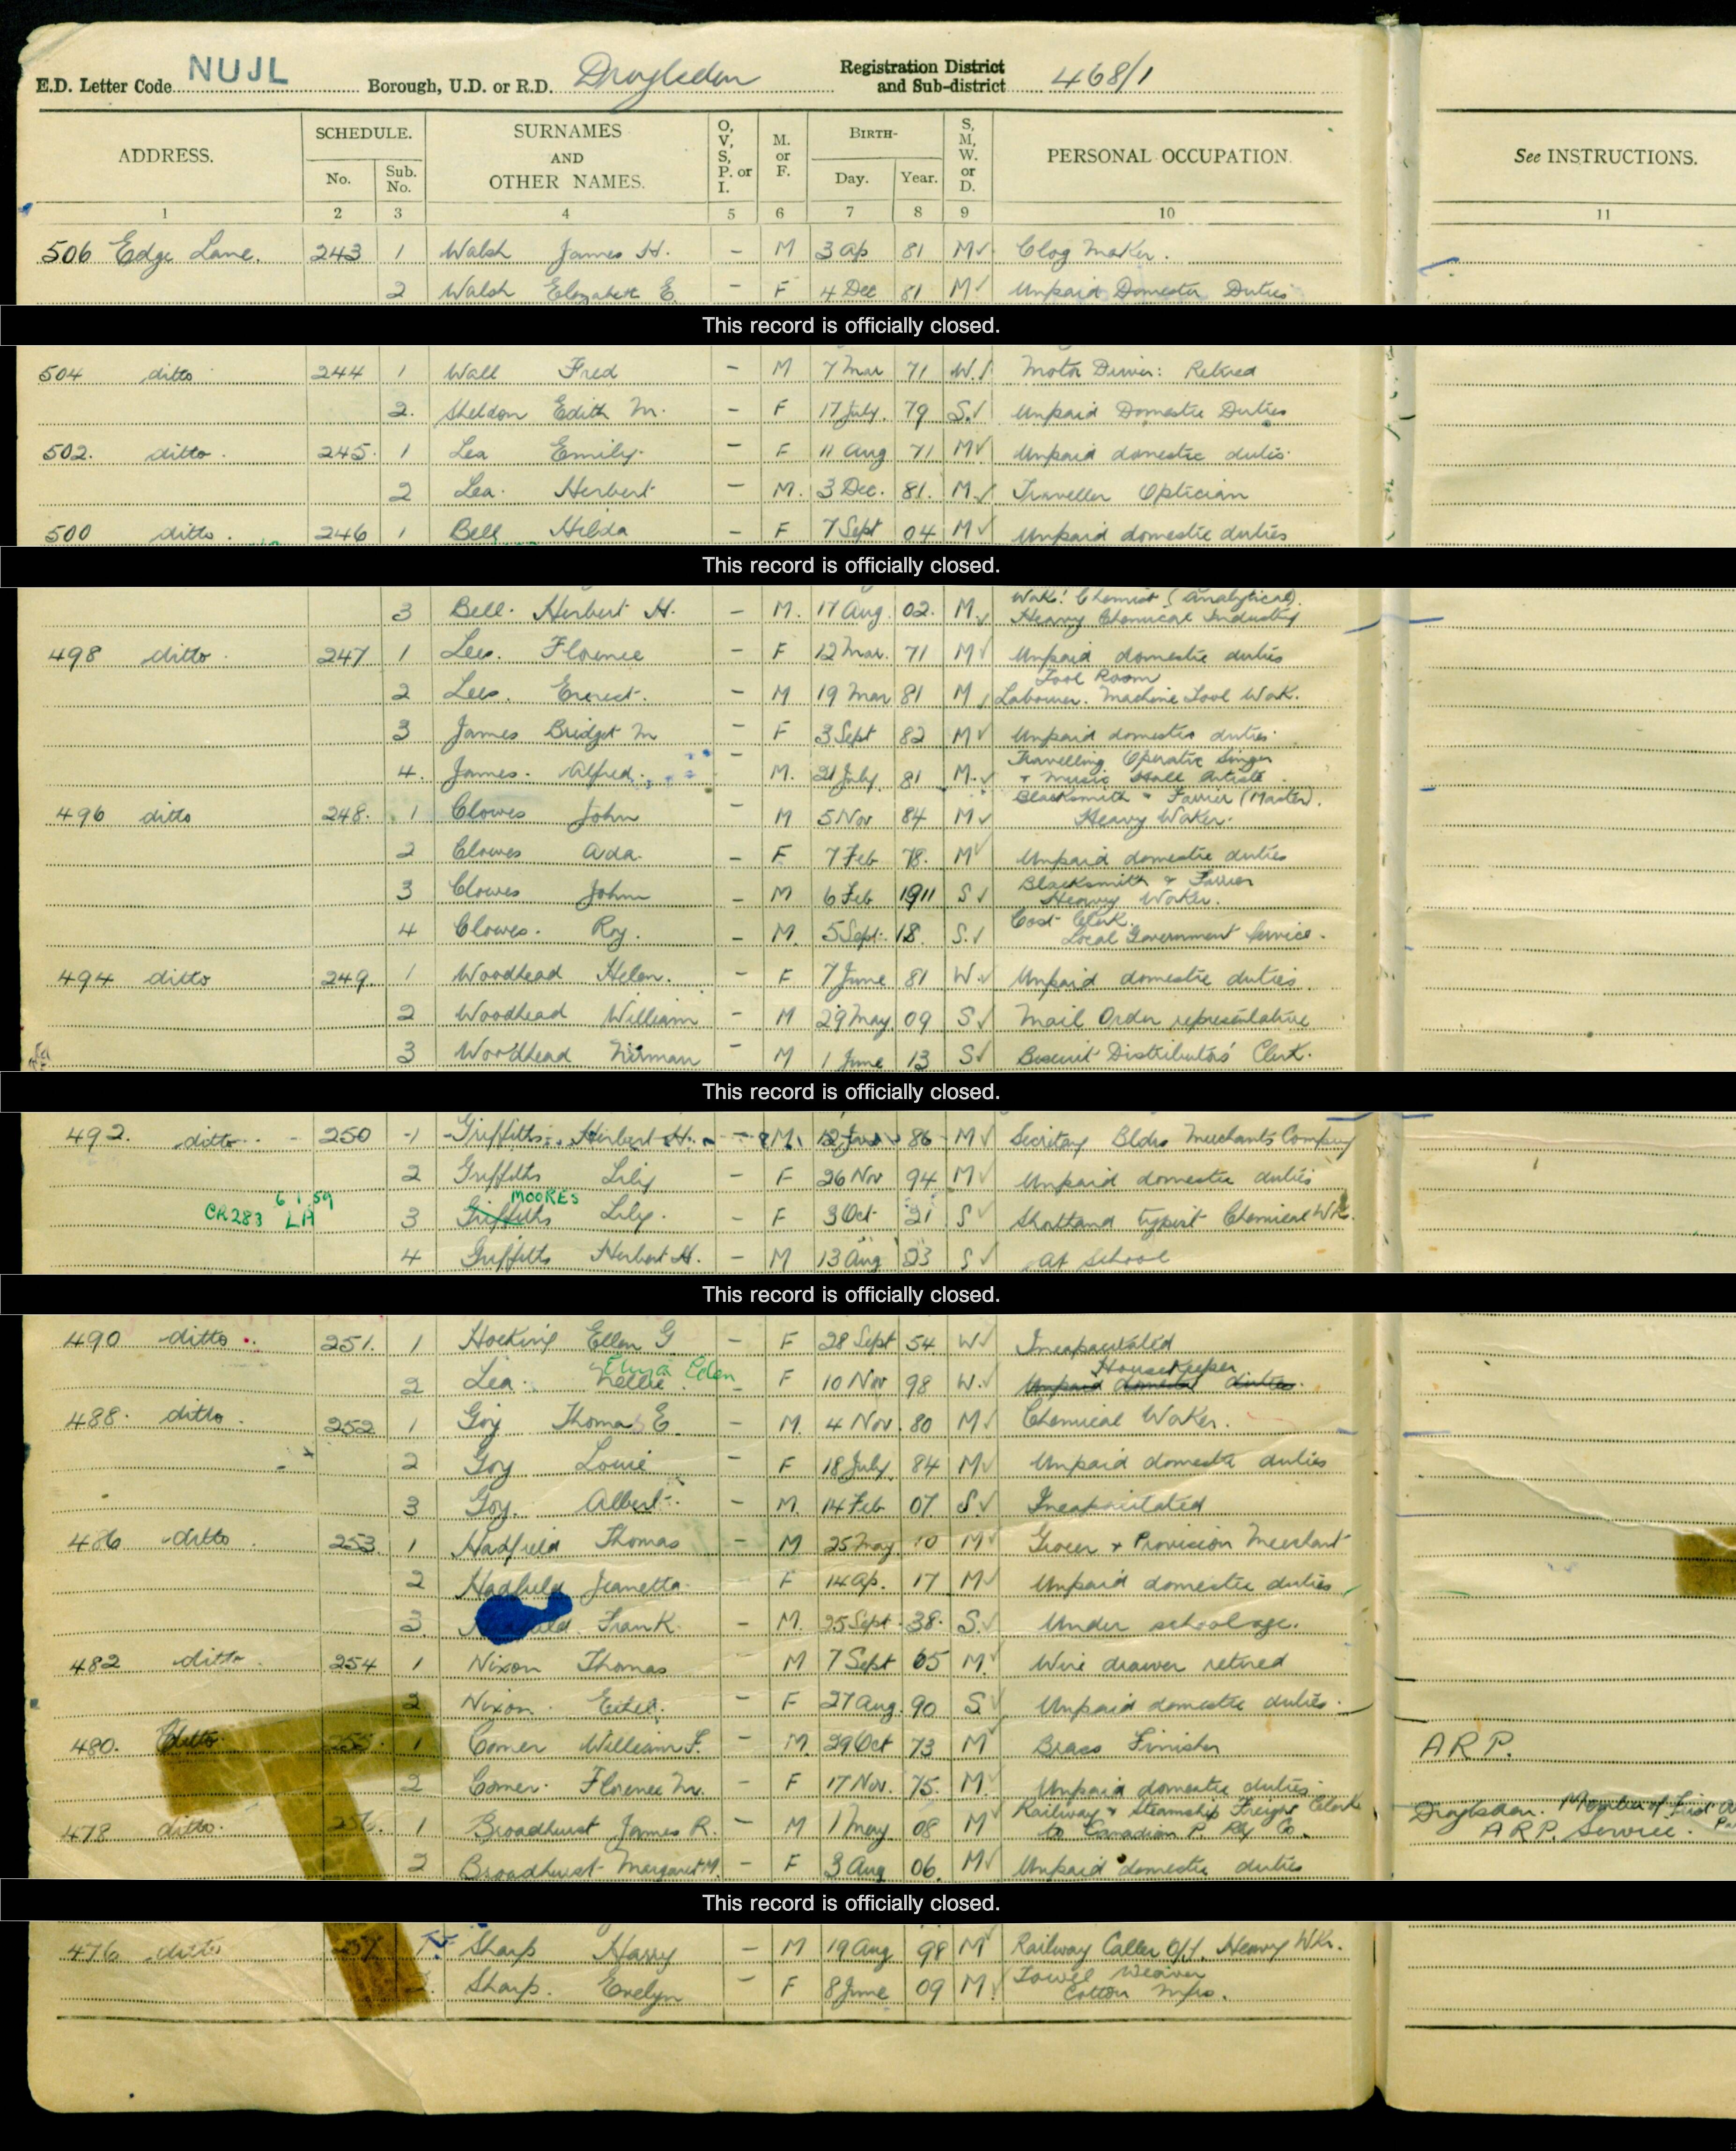 E.D. Letter Code NUJL Borough, U.D. or R.D. Droylsden Registration District and Sub-district 468/1
ADDRESS. SCHEDULE. No. Sub. No. SURNAMES AND OTHER NAMES. O, V, S, P. or I. M. or F. BIRTH- Day. Year. S, M, W. or D. PERSONAL OCCUPATION. See INSTRUCTIONS.
1 2 3 4 5 6 7 8 9 10 11
506 Edge Lane. 243 1 Walsh James H. - M 3 Ap 81 M✓ Clog Maker.
2 Walsh Elizabeth E. - F 4 Dec 81 M✓ Unpaid Domestic Duties
This record is officially closed.
504 ditto 244 1 Wall Fred - M 7 Mar 71 W.✓ Motor Driver: Retired
2. Sheldon Edith M. - F 17 July. 79 S.✓ Unpaid Domestic Duties
502. ditto. 245. 1 Lea Emily. - F 11 Aug 71 M✓ Unpaid domestic duties.
2 Lea. Herbert - M. 3 Dec. 81. M✓ Traveller Optician
500 ditto. 246 1 Bell Hilda - F 7 Sept 04 M✓ Unpaid domestic duties
This record is officially closed.
3 Bell. Herbert H. - M. 17 Aug. 02. M✓ Works Chemist (Analytical). Heavy Chemical Industry
498 ditto. 247 1 Lees. Florence - F 12 Mar. 71 M✓ Unpaid domestic duties
2 Lees. Ernest. - M 19 Mar 81 M✓ Tool Room Labourer. Machine Tool Wok.
3 James Bridget M - F 3 Sept 82 M✓ Unpaid domestic duties.
4. James. Alfred. - M. 21 July. 81 M.✓ Travelling Operatic Singer + Music Hall Artiste.
496 ditto 248. 1 Clowes John - M 5 Nov 84 M✓ Blacksmith + Farrier (Master). Heavy Worker.
2 Clowes Ada. - F 7 Feb 78. M✓ Unpaid domestic duties
3 Clowes John - M 6 Feb 1911 S✓ Blacksmith + Farrier Heavy Worker.
4 Clowes. Roy. - M. 5 Sept. 18. S.✓ Cost Clerk. Local Government Service.
494 ditto 249. 1 Woodhead Helen. - F 7 June 81 W.✓ Unpaid domestic duties.
2 Woodhead William - M 29 May. 09 S✓ Mail Order representative
3 Woodhead Norman - M 1 June 13 S✓ Biscuit Distributors' Clerk.
This record is officially closed.
492. ditto 250 1 Griffiths. Herbert H. - M. 12 Jan 86 M✓ Secretary Bldrs Merchants Company
2 Griffiths Lily - F 26 Nov 94 M✓ Unpaid domestic duties
6 1 59 MOORES
CR283 LA 3 Griffiths Lily. - F 3 Oct 21 S✓ Shorthand typist Chemical Wks.
4 Griffiths Herbert H. - M 13 Aug 23 S✓ At School
This record is officially closed.
490 ditto. 251. 1 Hocking Ellen G - F 28 Sept 54 W✓ Incapacitated
Eden Housekeeper
2 Lea. Nellie. - F 10 Nov 98 W.✓ Unpaid domestic duties.
488. ditto. 252 1 Goy Thomas E. - M. 4 Nov. 80 M✓ Chemical Worker.
2 Goy Louie - F 18 July. 84 M✓ Unpaid domestic duties
3 Goy. Albert. - M. 14 Feb 07 S✓ Incapacitated
486 ditto. 253. 1 Hadfield Thomas - M 25 May 10 M✓ Grocer + Provision Merchant
2 Hadfield Jeanetta. - F 14 Ap. 17 M✓ Unpaid domestic duties
3. Frank. - M. 25 Sept. 38. S.✓ Under school age.
482 ditto. 254 1 Nixon Thomas M 7 Sept 65 M.✓ Wire drawer retired
2 Nixon. Ethel. - F 27 Aug. 90 S.✓ Unpaid domestic duties.
480. ditto. 255. 1 Comer William F. - M. 29 Oct 73 M✓ Brass Finisher A R P.
2 Comer. Florence M. - F 17 Nov. 75. M.✓ Unpaid domestic duties.
478 ditto. 256. 1 Broadhurst James R. - M 1 May 08 M✓ Railway + Steamship Freight Clerk to Canadian P. Rly Co. Droylsden. Member of First A.R.P. Service.
2 Broadhurst Margaret M. - F 3 Aug 06. M✓ Unpaid domestic duties
This record is officially closed.
476 ditto 257. 1 Sharp Harry - M 19 Aug 98 M✓ Railway Caller Off. Heavy Wkr.
2. Sharp. Evelyn - F 8 June 09 M.✓ Towel Weaver Cotton Mfrs.